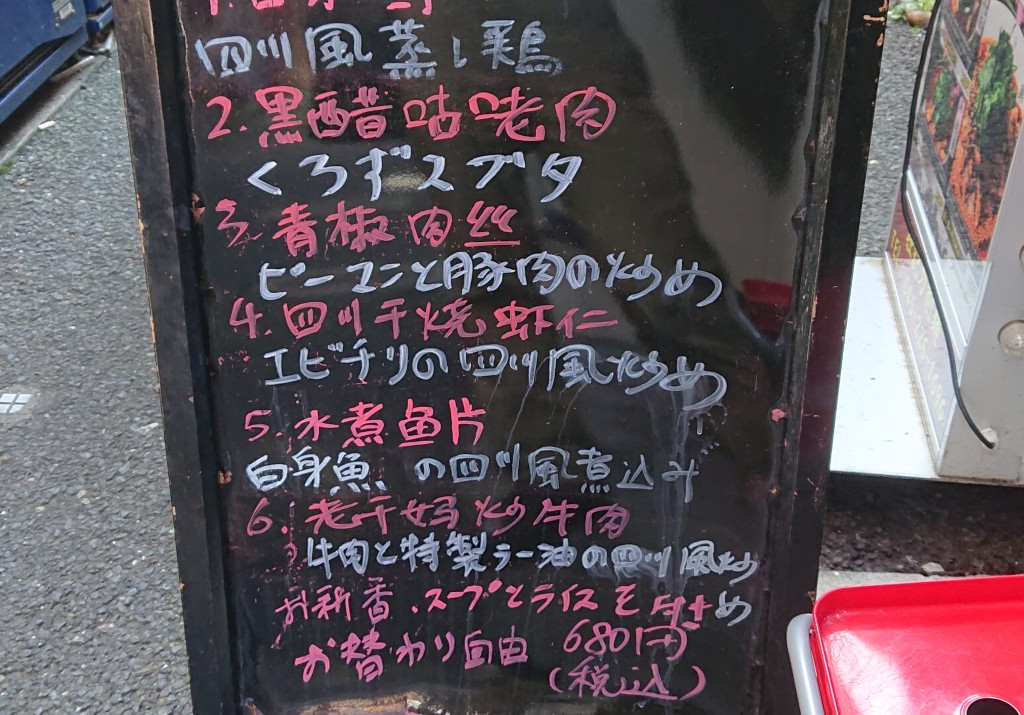 四川風蒸し鶏
2.黒醋咕咾肉
くろずスブタ
3.青椒肉丝
ピーマンと豚肉の炒め
4.四川干焼蝦仁
エビチリの四川風炒め
5.水煮鱼片
白身魚の四川風煮込み
6.老干妈炒牛肉
牛肉と特製ラー油の四川風炒め
お新香.スープとライスを付き
お替わり自由 680円
(税込)